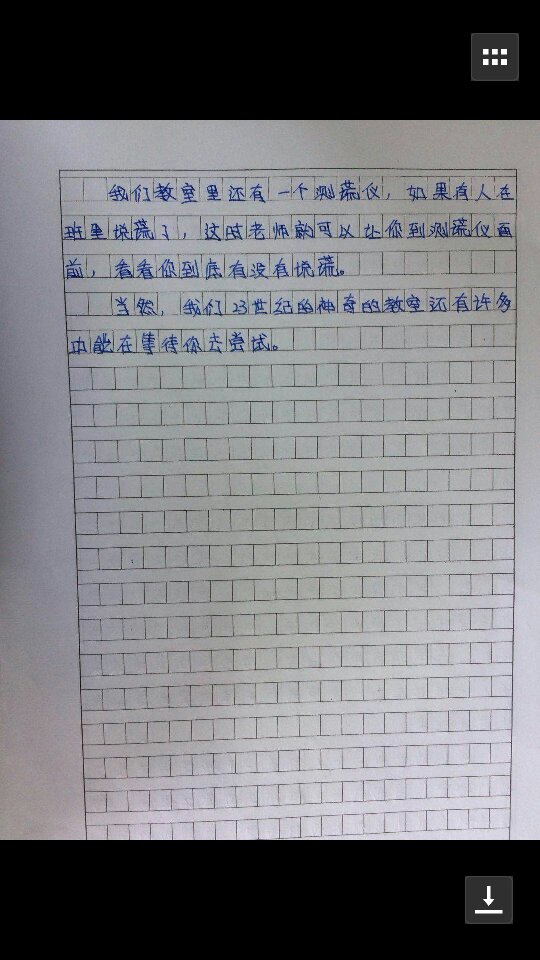 我们教室里还有一个测谎仪，如果有人在
班里说谎了，这时老师就可以让你到测谎仪面
前，看看你到底有没有说谎。
当然，我们23世纪的神奇的教室还有许多
功能在等待你去尝试。